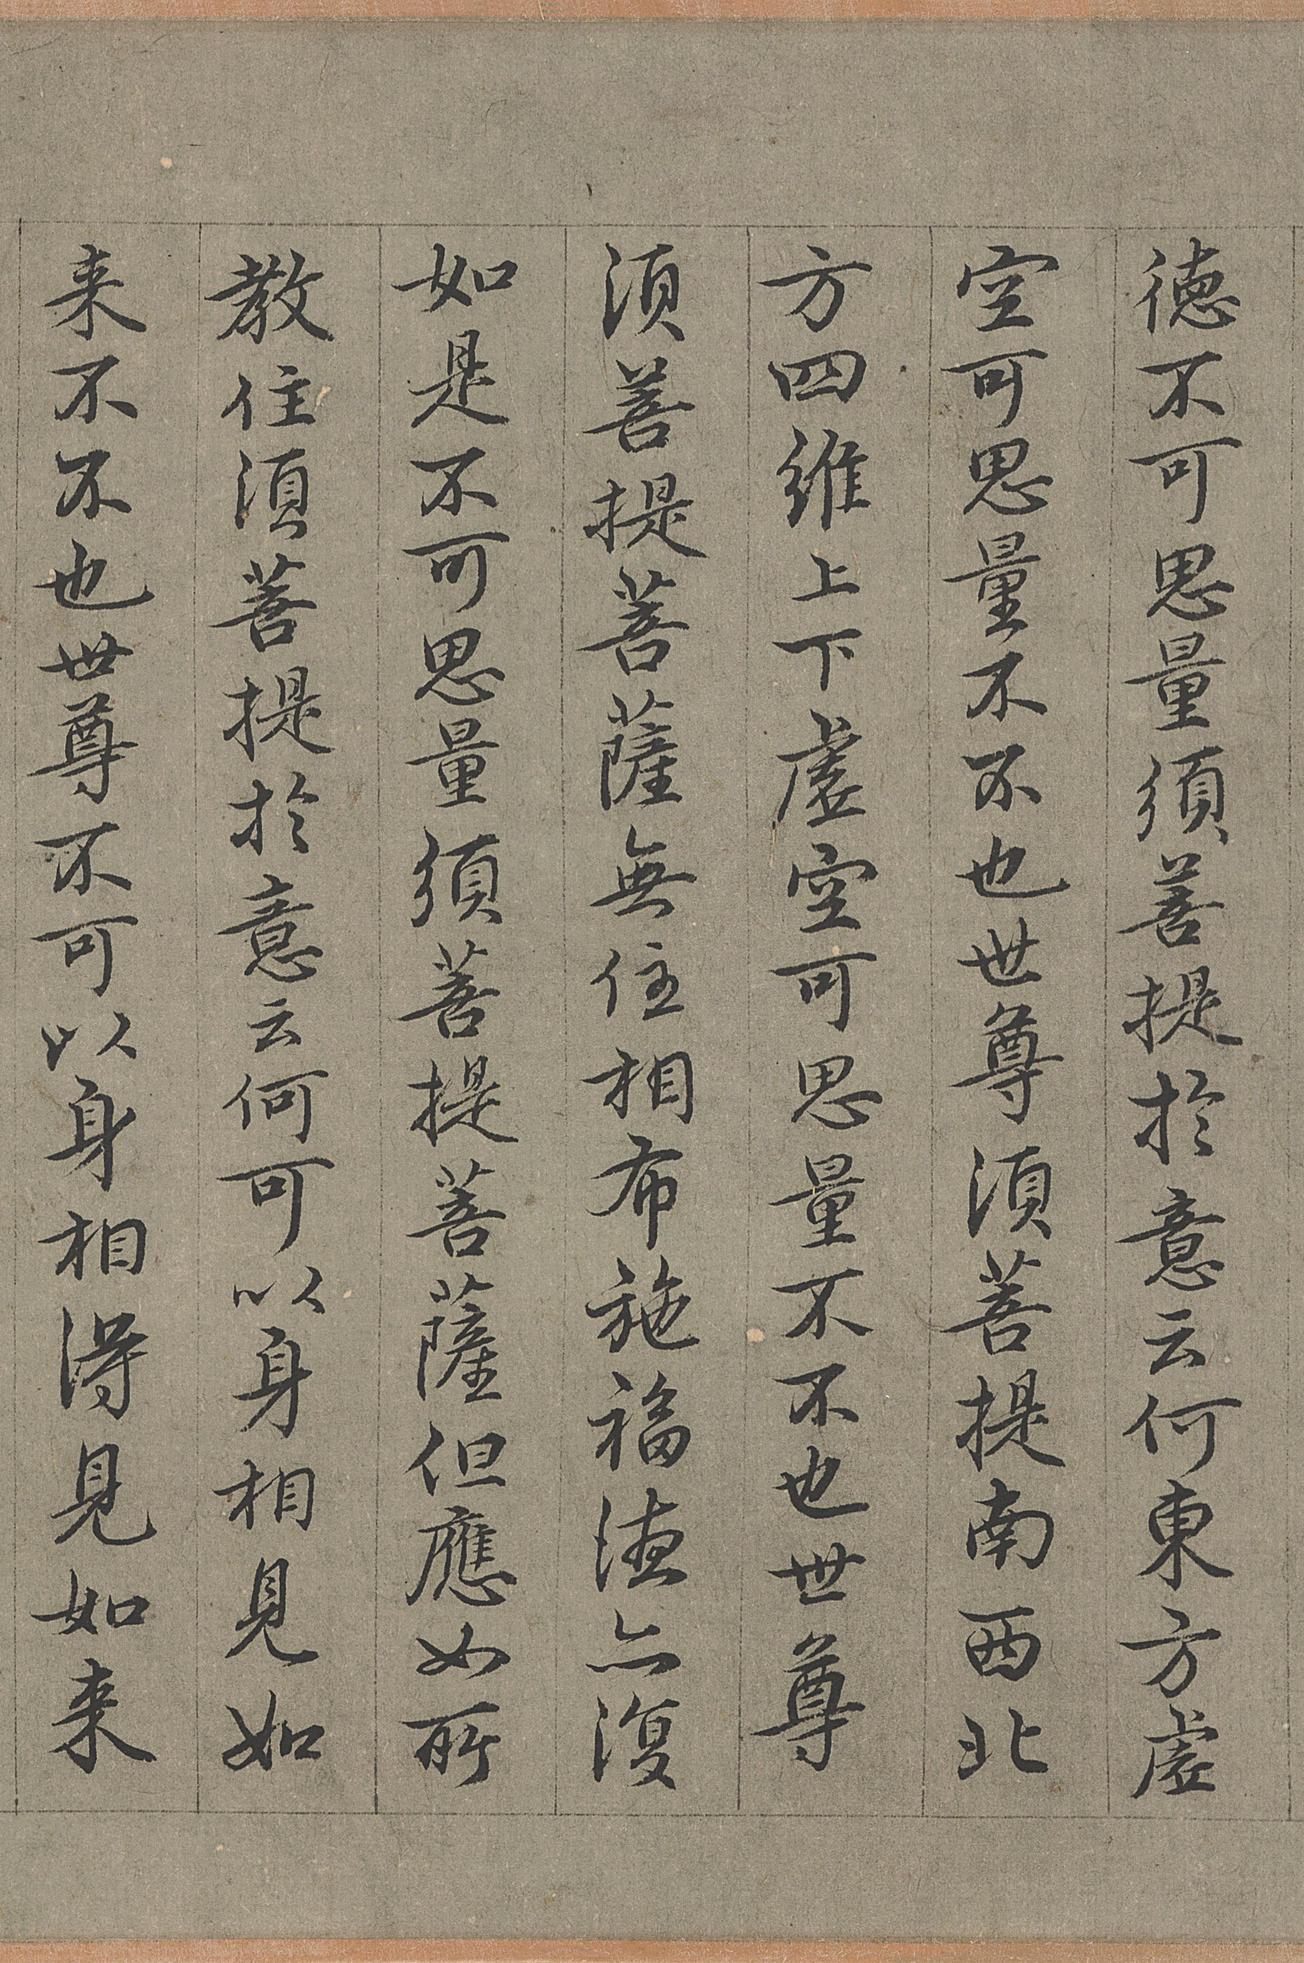 德不可思量須菩提於意云何東方虛
空可思量不不也世尊須菩提南西北
方四維上下虛空可思量不不也世尊
須菩提菩薩無住相布施福德亦復
如是不可思量須菩提菩薩但應如所
教住須菩提於意云何可以身相見如
来不不也世尊不可以身相得見如来